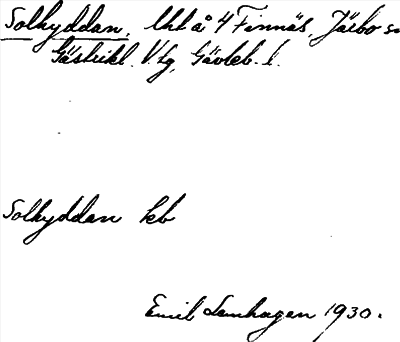 Solhyddan, lht å 4 Finnäs, Järbo sn
Gästrikl. V tg, Gävleb. l.
Solhyddan kb
Emil Lamhagen 1930.